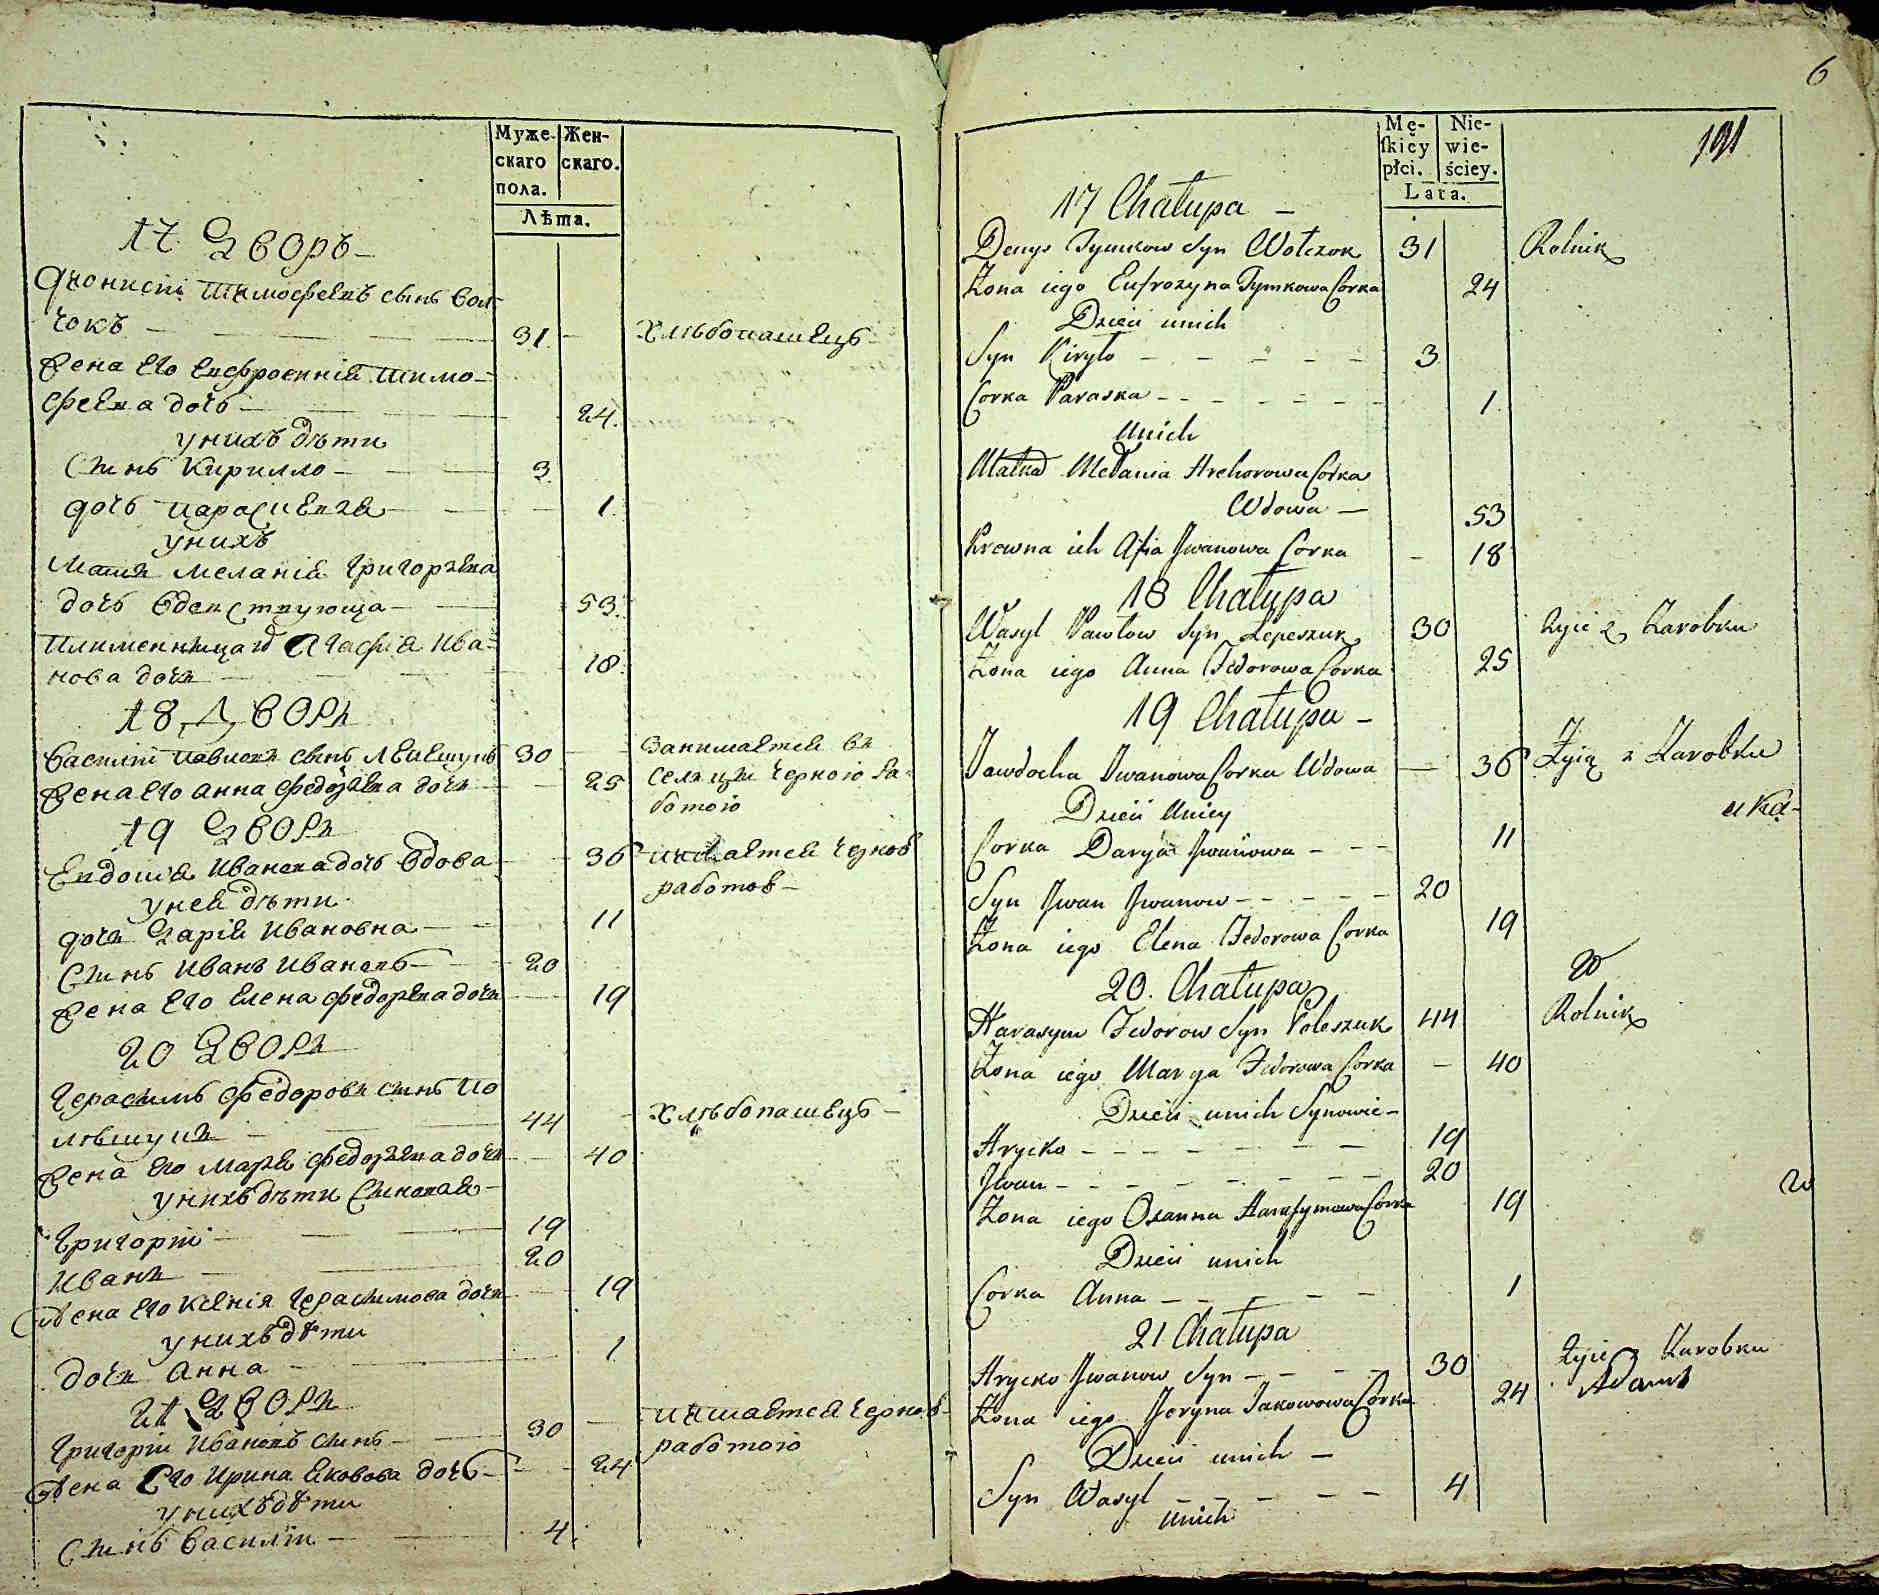 Муже-
скаго
пола.
Жен-
скаго.
Лѣта.
17. Дворъ
Діонисій Тимофеевъ сынъ Вол-
чокъ 31 Хлѣбопашецъ
Жена его Евфросинія Тимо-
феева дочь 24.
у нихъ дѣти
Сынъ Кирилло 3
дочь Параскевія 1.
у нихъ
Мать Меланія Григорьева
дочь вдовствующа 53.
Племенница ихъ Агафія Ива-
нова дочь 18.
18 Дворъ
Василій Павловъ сынъ 30 занимается въ
Жена его Анна Федорова дочь 25 черною ра-
ботою
19 Дворъ
Евдокія Иванова дочь вдова 36 питается черною
работою
у ней дѣти
дочь Дарія Ивановна 11
Сынъ Иванъ Ивановъ 20
Жена его Елена Федорова дочь 19
20 Дворъ
Герасимъ Федоровъ сынъ По
лѣшукъ 44 Хлѣбопашецъ
Жена его Марья Федорова дочь 40
у нихъ дѣти Сыновья
Григорій 19
Иванъ 20
Жена его Ксенія Герасимова дочь 19
у нихъ дѣти
дочь Анна 1
21 Дворъ
Григорій Ивановъ сынъ 30 питается черною
работою
Жена Его Ирина Яковова дочь 24
у нихъ дѣти
Сынъ Василій 4.
6
191
Mę-
ſkiey
płci.
Nie-
wie-
ściey.
Lata.
17 Chałupa
Denys Tymkow Syn Wołczok 31 Rolnik
Żona iego Eufrozyna Tymkowa Corka 24
Dzieci u nich
Syn Kiryło 3
Corka Paraska 1
u nich
Matka Mełania Hrehorowa Corka
Wdowa 53
Krewna ich Afia Jwanowa Corka 18
18 Chałupa
Wasyl Pawłow Syn Lepeszuk 30 Żyie z Zarobku
Żona iego Anna Fedorowa Corka 25
19 Chałupa
Jawdocha Jwanowa Corka Wdowa 36 Żyią z Zarobku
Dzieci u niey
Corka Darya Jwanowa 11
Syn Jwan Jwanow 20
Żona iego Elena Fedorowa Corka 19
20. Chałupa
Harasym Fedorow Syn Poleszuk 44 Rolnik
Żona iego Marya Fedorowa Corka 40
Dzieci u nich Synowie
Hrycko 19
Jwan 20
Żona iego Oxanna Harasymowa Corka 19
Dzieci u nich
Corka Anna 1
21 Chałupa
Hrycko Jwanow Syn 30 Żyie z Zarobku
Żona iego Jeryna Jakowowa Corka 24
Dzieci u nich
Syn Wasyl 4
u nich